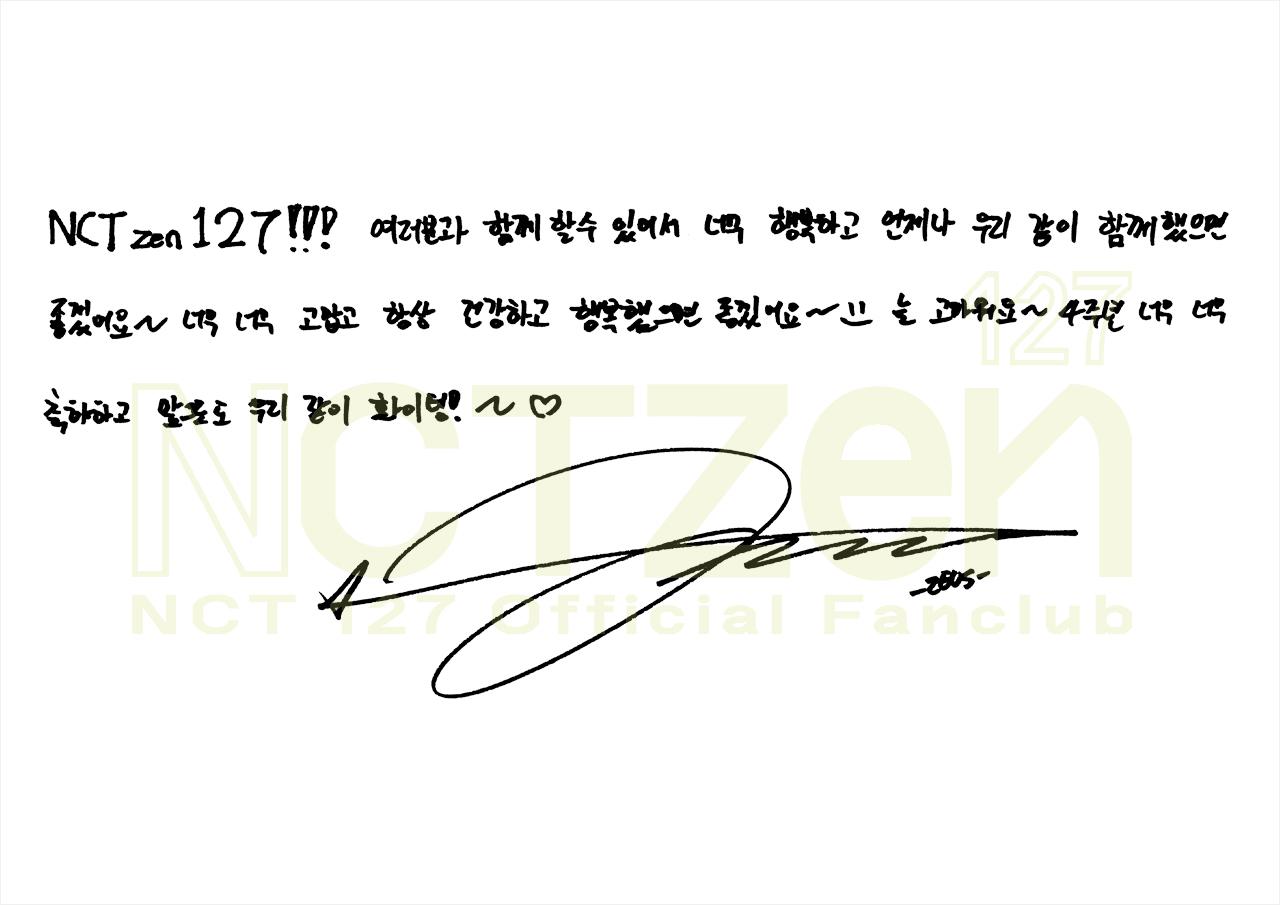 NCTzen 127!!! 여러분과 함께 할수 있어서 너무 행복하고 언제나 우리 같이 함께했으면
좋겠어요~ 너무 너무 고맙고 항상 건강하고 행복했으면 좋겠어요~ 늘 고마워요~ 4주년 너무 너무
축하하고 앞으로도 우리 같이 화이팅!~♡
127
NCTzen
NCT 127 Official Fanclub